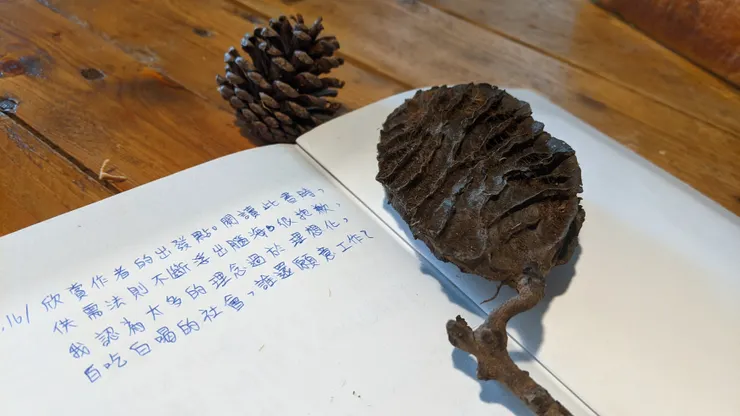 .16/ 欣賞作者的出發點。閱讀此書時,
供需法則不斷浮出腦海。很抱歉,
我認為太多的理念過於理想化,
白吃白喝的社會,誰還願意工作?